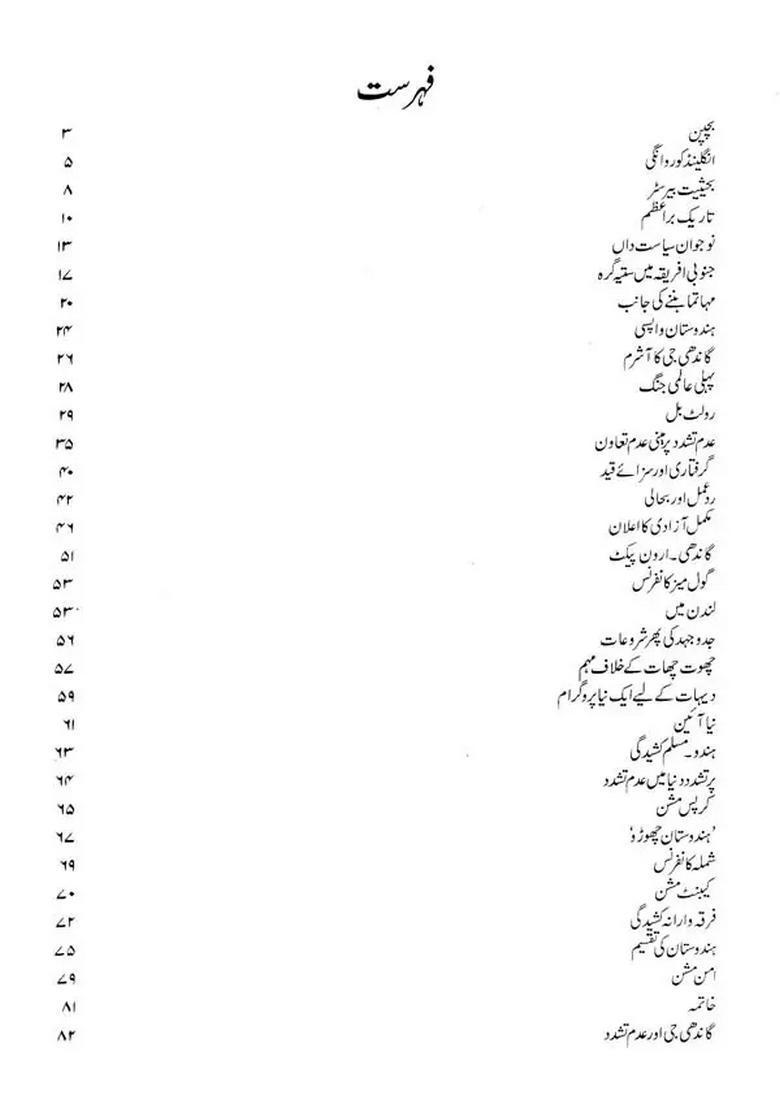 فہرست
بچپن ۳
انگلینڈ کو روانگی ۵
بحیثیت بیرسٹر ۸
تاریک براعظم ۱۰
نوجوان سیاست داں ۱۳
جنوبی افریقہ میں ستیہ گرہ ۱۷
مہاتما بننے کی جانب ۲۰
ہندوستان واپسی ۲۴
گاندھی جی کا آشرم ۲۶
پہلی عالمی جنگ ۲۸
رولٹ بل ۲۹
عدم تشدد پر مبنی عدم تعاون ۳۵
گرفتاری اور سزائے قید ۴۰
ردعمل اور بحالی ۴۲
مکمل آزادی کا اعلان ۴۶
گاندھی۔ارون پیکٹ ۵۱
گول میز کانفرنس ۵۳
لندن میں ۵۳
جدوجہد کی پھر شروعات ۵۶
چھوت چھات کے خلاف مہم ۵۷
دیہات کے لیے ایک نیا پروگرام ۵۹
نیا آئین ۶۱
ہندو۔مسلم کشیدگی ۶۳
پرتشدد دنیا میں عدم تشدد ۶۴
کرپس مشن ۶۵
'ہندوستان چھوڑو' ۶۷
شملہ کانفرنس ۶۹
کیبنٹ مشن ۷۰
فرقہ وارانہ کشیدگی ۷۲
ہندوستان کی تقسیم ۷۵
امن مشن ۷۹
خاتمہ ۸۱
گاندھی جی اور عدم تشدد ۸۲